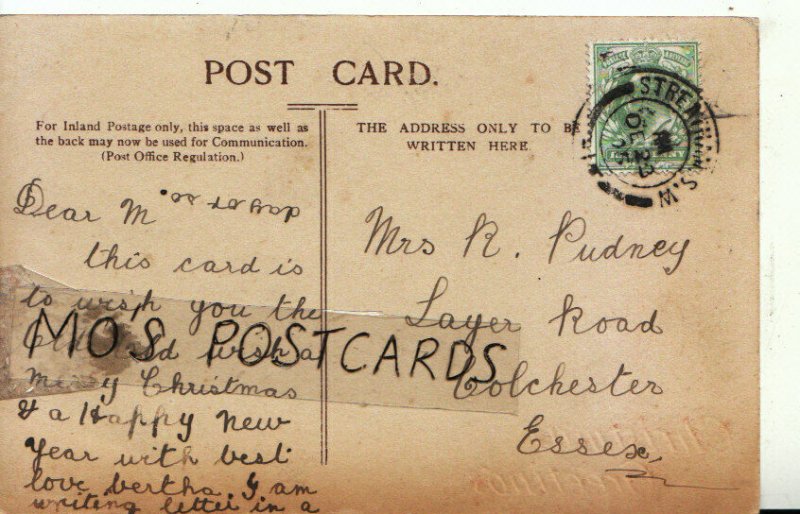 POST CARD.
For Inland Postage only, this space as well as
the back may now be used for Communication.
(Post Office Regulation.)
THE ADDRESS ONLY TO BE
WRITTEN HERE.
STREA S.W
DE 23
05
Dear M
this card is
to wish you the
wish a
Merry Christmas
& a Happy New
Year with best
love bertha. I am
writing letter in a
Mrs R. Pudney
Layer Road
Colchester
Essex.
MOS POSTCARDS